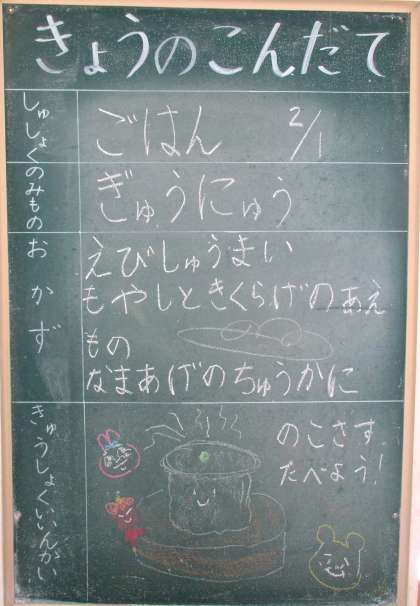 きょうのこんだて
しゅしょく
ごはん 2/1
のみもの
ぎゅうにゅう
おかず
えびしゅうまい
もやしときくらげのあえ
もの
なまあげのちゅうかに
きゅうしょくいいんかい
のこさず
たべよう!